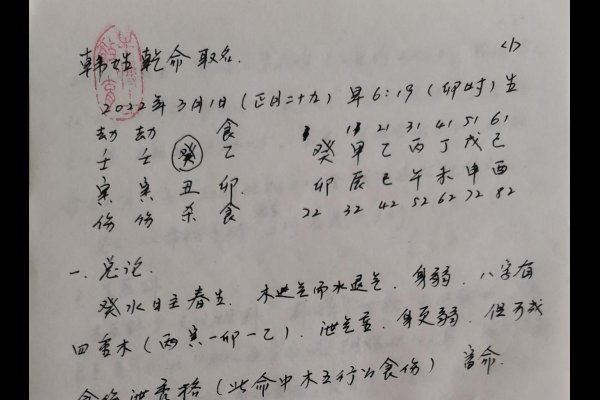 韩姓乾命取名. <1>
2022年3月1日(正月二十九)早6:19(卯时)生
劫 劫 食 1 11 21 31 41 51 61
壬 壬 癸 乙 癸 甲 乙 丙 丁 戊 己
寅 寅 丑 卯 卯 辰 巳 午 未 申 酉
伤 伤 杀 食 22 32 42 52 62 72 82
一. 总论.
癸水日主春生. 木进气而水退气. 身弱. 八字有
四重木(两寅一卯一乙). 泄气重. 身更弱. 但可成
食伤泄秀格(此命中木五行为食伤) 富命.